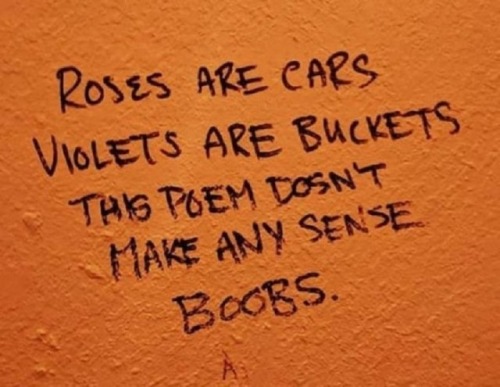 ROSES ARE CARS
VIOLETS ARE BUCKETS
THIS POEM DOSN'T
MAKE ANY SENSE
BOOBS.
A.